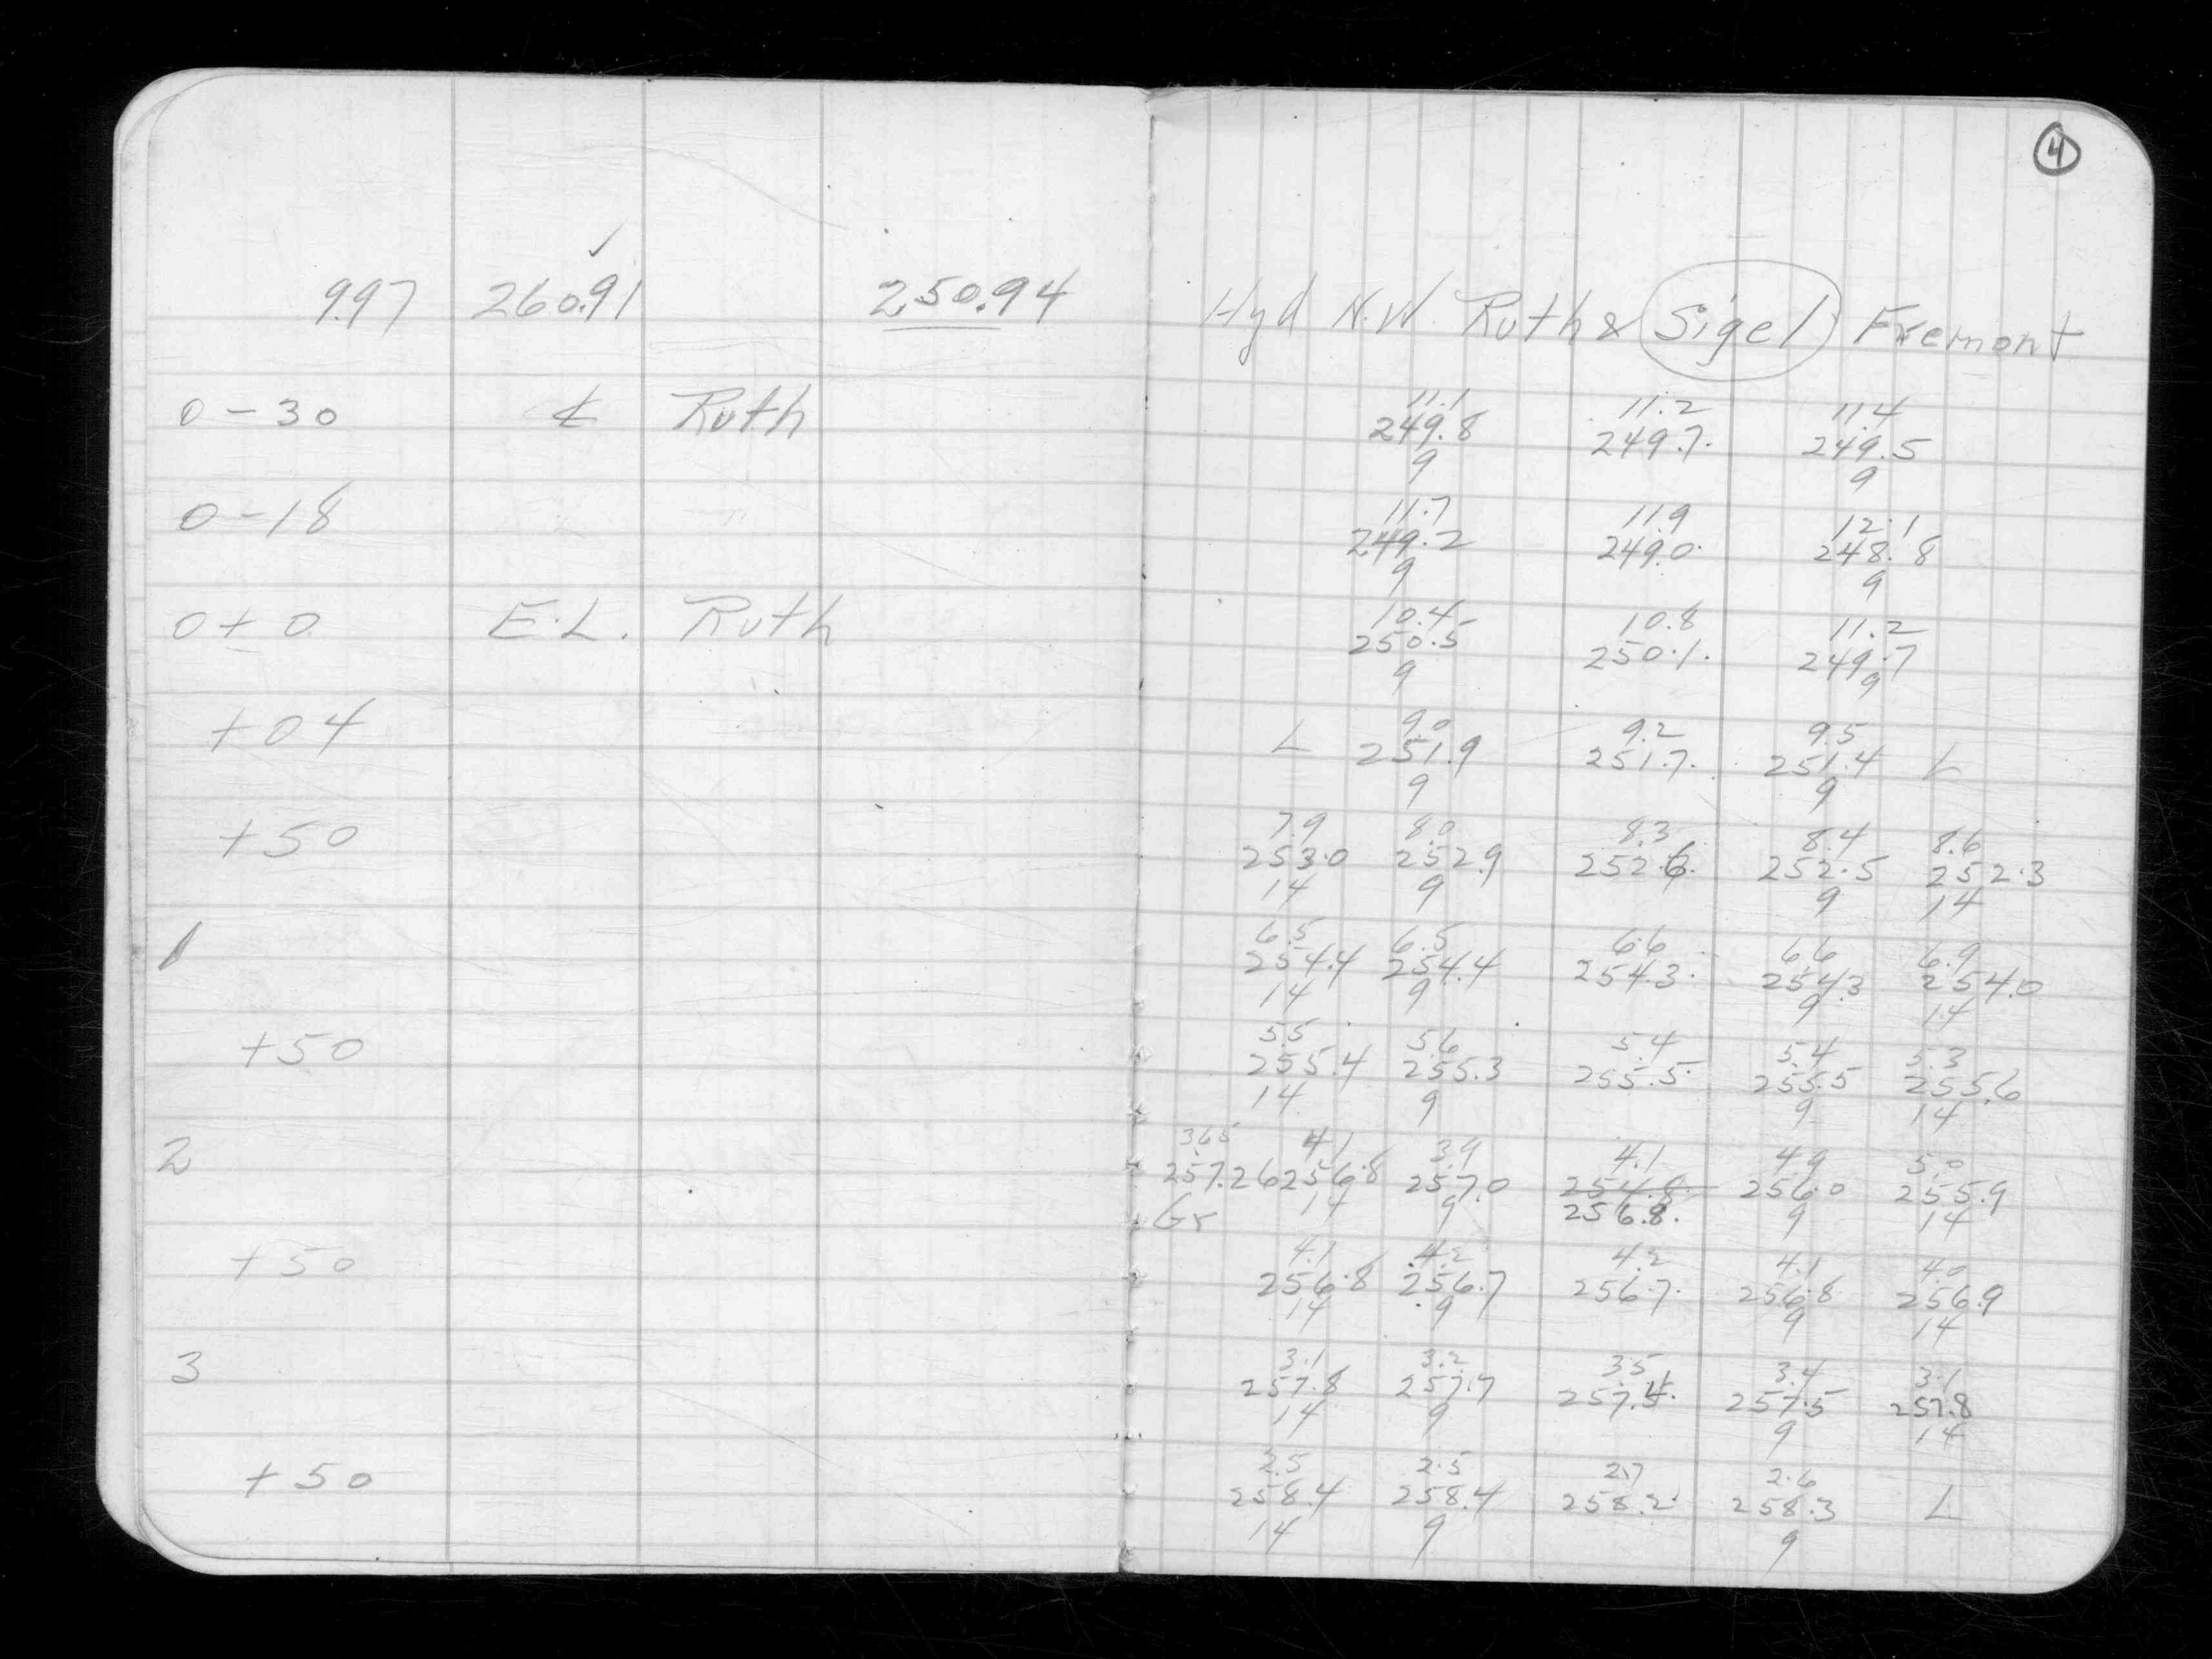 4
9.97 260.91 ✓ 250.94 Hyd N.W. Ruth & Sigel Fremont
0-30 ₵ Ruth 11.1 11.2 11.4
249.8 249.7. 249.5
9 9
0-18 11.7 11.9 12.1
249.2 249.0. 248.8
9 9
0+0 E.L. Ruth 10.4 10.8 11.2
250.5 250.1. 249.7
9 9
+04 9.0 9.2 9.5
L 251.9 251.7. 251.4 L
9 9
+50 7.9 8.0 8.3 8.4 8.6
253.0 252.9 252.6. 252.5 252.3
14 9 9 14
1 6.5 6.5 6.6 6.6 6.9
254.4 254.4 254.3. 254.3 254.0
14 9 9 14
+50 5.5 5.6 5.4 5.4 5.3
255.4 255.3 255.5. 255.5 255.6
14 9 9 14
2 3.65 4.1 3.9 4.1 4.9 5.0
257.26 256.8 257.0 254.8. 256.0 255.9
Gr 14 9 256.8. 9 14
+50 4.1 4.2 4.2 4.1 4.0
256.8 256.7 256.7. 256.8 256.9
14 9 9 14
3 3.1 3.2 3.5 3.4 3.1
257.8 257.7 257.4. 257.5 257.8
14 9 9 14
+50 2.5 2.5 2.7 2.6
258.4 258.4 258.2. 258.3 L
14 9 9